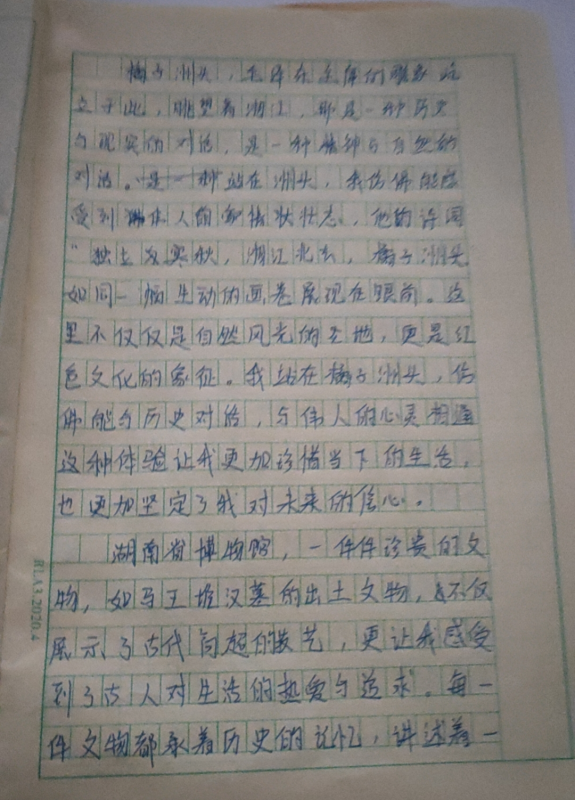 橘子洲头，毛泽东主席的雕象屹
立于此，眺望着湘江，那是一种历史
与现实的对话，是一种精神与自然的
对话。是一种站在洲头，我仿佛能感
受到伟人的状壮志，他的诗词
"独立寒秋，湘江北去，橘子洲头
如同一幅生动的画卷展现在眼前。这
里不仅仅是自然风光的圣地，更是红
色文化的象征。我站在橘子洲头，仿
佛能与历史对话，与伟人的心灵相通
这种体验让我更加珍惜当下的生活，
也更加坚定了我对未来的信心。
湖南省博物馆，一件件珍贵的文
物，如马王堆汉墓的出土文物，不仅
展示了古代高超的技艺，更让我感受
到了古人对生活的热爱与追求。每一
件文物都承着历史的记忆，讲述着一
R1.13.2020.4